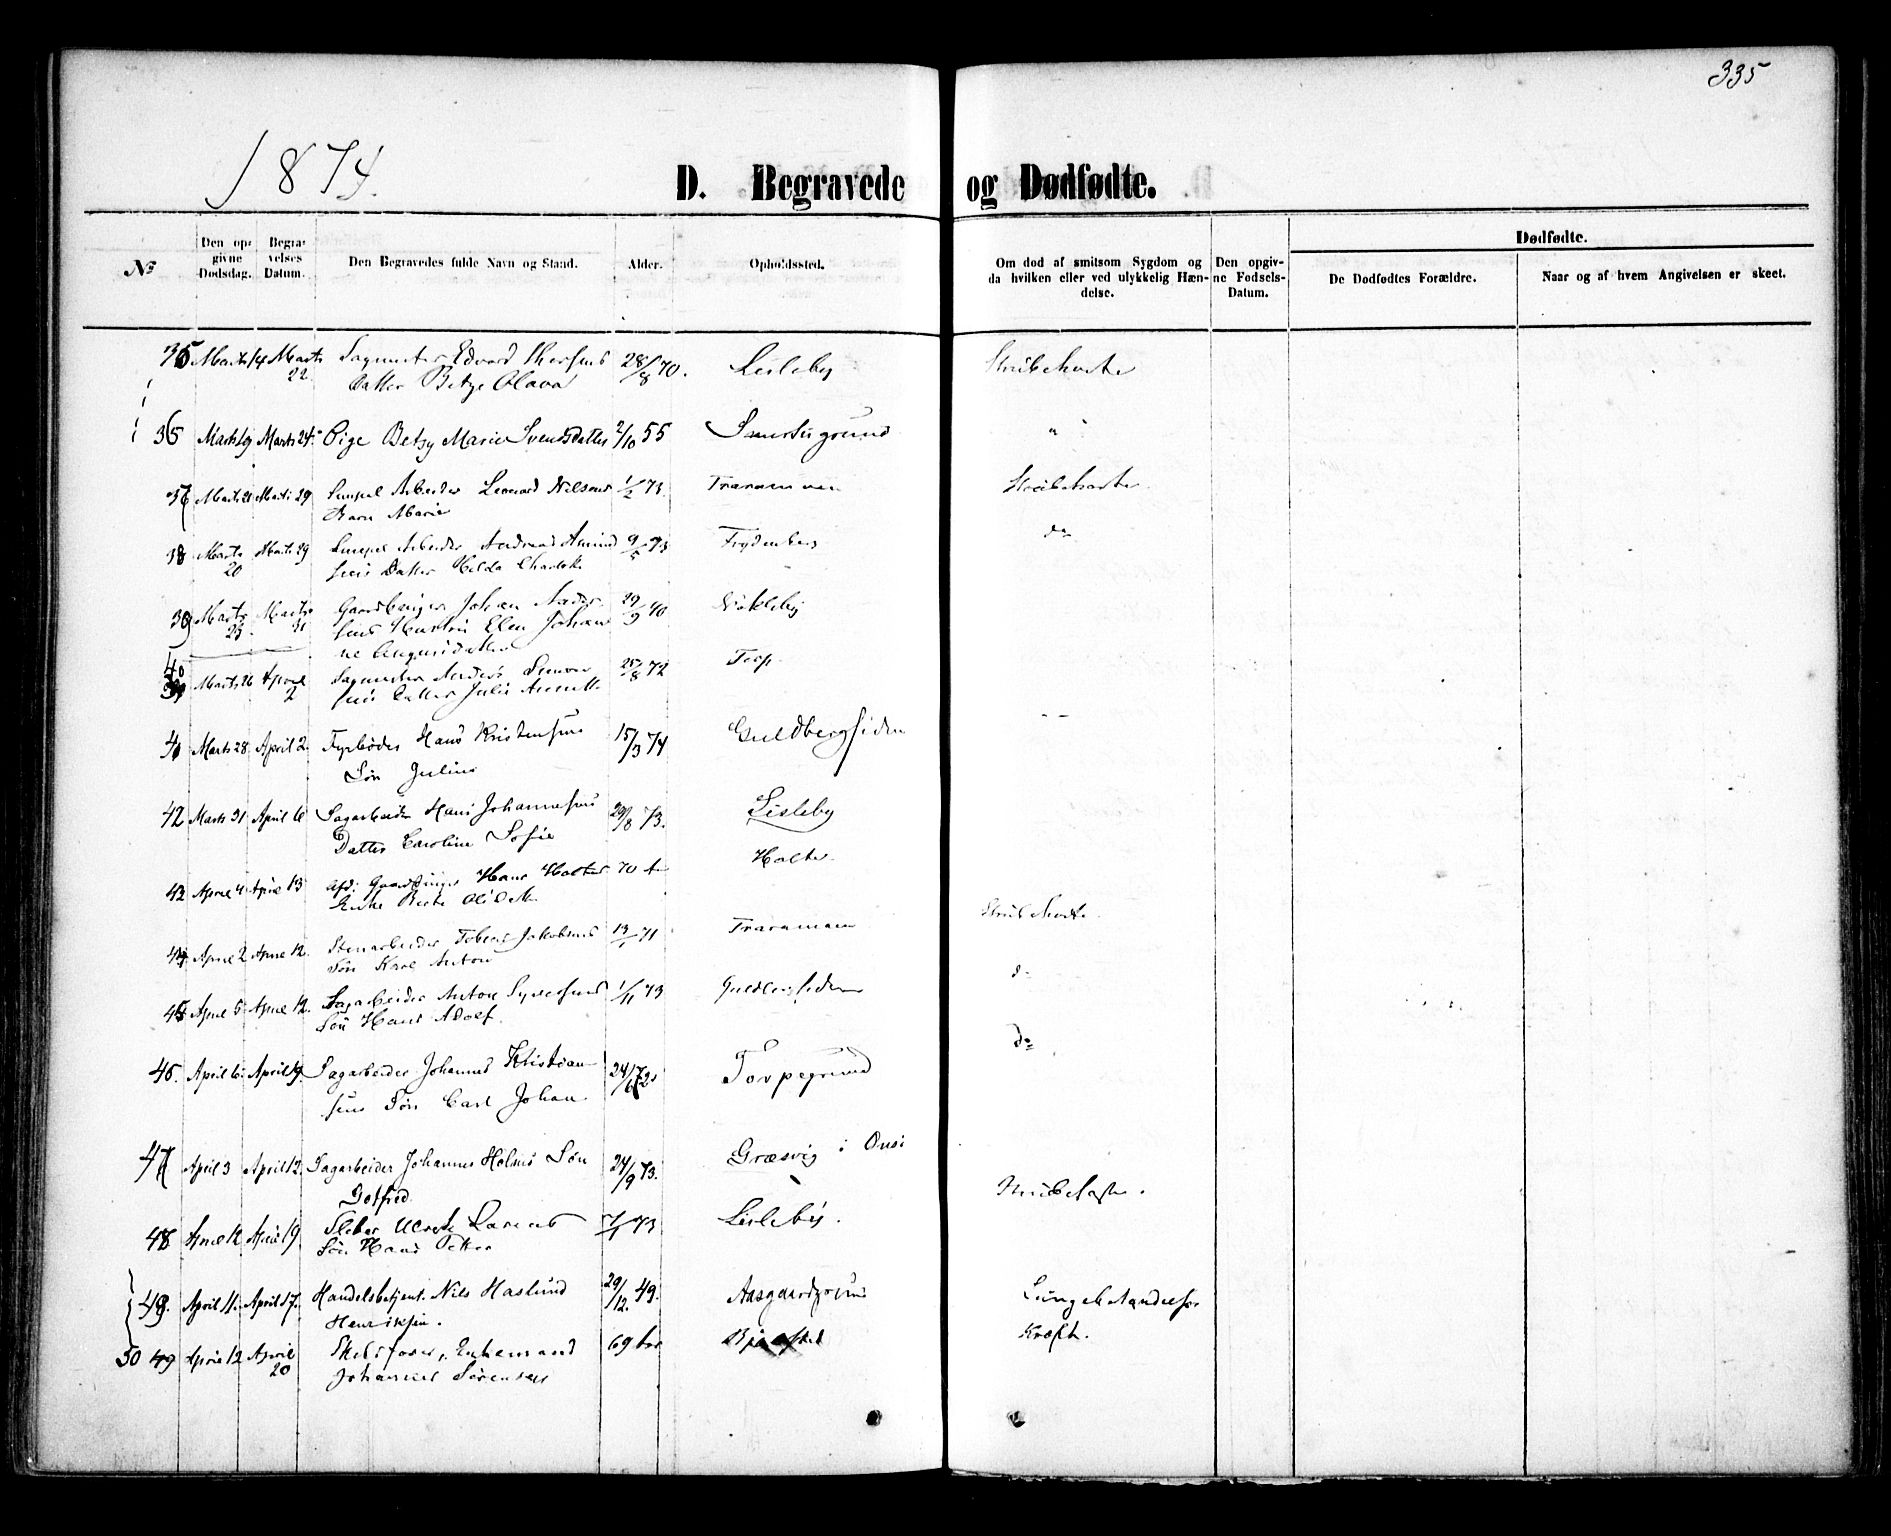 335
1874.
D. Begravede og Dødfødte.
№
Den opgivne Dødsdag.
Begravelses Datum.
Den Begravedes fulde Navn og Stand.
Alder.
Opholdssted.
Om død af smitsom Sygdom og da hvilken eller ved ulykkelig Hændelse.
Den opgivne Fødsels-Datum.
Dødfødte.
De Dødfødtes Forældre.
Naar og af hvem Angivelsen er skeet.
35 Marts 14 Marts 22 Sagmester Edvard 28/8 70. Lisleby Strubehoste
Datter Betzy Olava
36 Marts 19 Marts 24 Pige Betsy Marie Svendsdatter 2/10 55 Smertugrund "
37 Marts 21 Marts 29 Leonard Nilsens 1/2 73 Traramoen Strubehoste
Barn Marie
38 Marts 20 Marts 29 Arbeider Andreas 9/5 73 Frydenberg do
sens Datter Hilda Charlotte
39 Marts 23 Marts 31 Gaardbruger Johan Ander- 29/9 40 Nøkleby
sens Hustru Elen Johan-
ne
40 39 Marts 26 April 2 Sagmester Anders Simon- 25/8 72 Torp
sens Datter Julie Annette
41 Marts 28 April 2 Fyrbøder Hans Kristensens 15/3 74 Guldbergsiden
Søn Julius
42 Marts 31 April 6 Sagarbeider Hans Johannesens 29/8 73. Lisleby
Datter Caroline Sofie
43 April 4 April 13 afd: Gaardbruger Hans Holter 70 Holter
Enke Berte
44 April 2 April 12. Stenarbeider Tobias Jakobsens 13/1 71 Traramoen Strubehoste
Søn Karl Anton
45 April 5 April 12. Sagarbeider Anton Syversens 1/11 73 Guldbergsiden d-
Søn Hans Adolf.
46. April 6 April 9. Sagarbeider Johannes Kristian- 24/6 72 Torpegrund do
sens Søn Carl Johan.
47 April 3 April 12. Sagarbeider Johannes Holms Søn 24/9 73. Græsvig i Onsø
Gotfred
48 April 12 April 19 Ulrik Larsens 7/1 73 Lisleby. Strubehoste.
Søn Hans Petter
49. April 11. April 17. Handelsbetjent. Nils Haslund 29/12. 49. Aasgaardgrund Lungebetændelse
Henriksen.
50 49 April 12 April 20 Enkemand 69 Kræft.
Johannes Sørensen